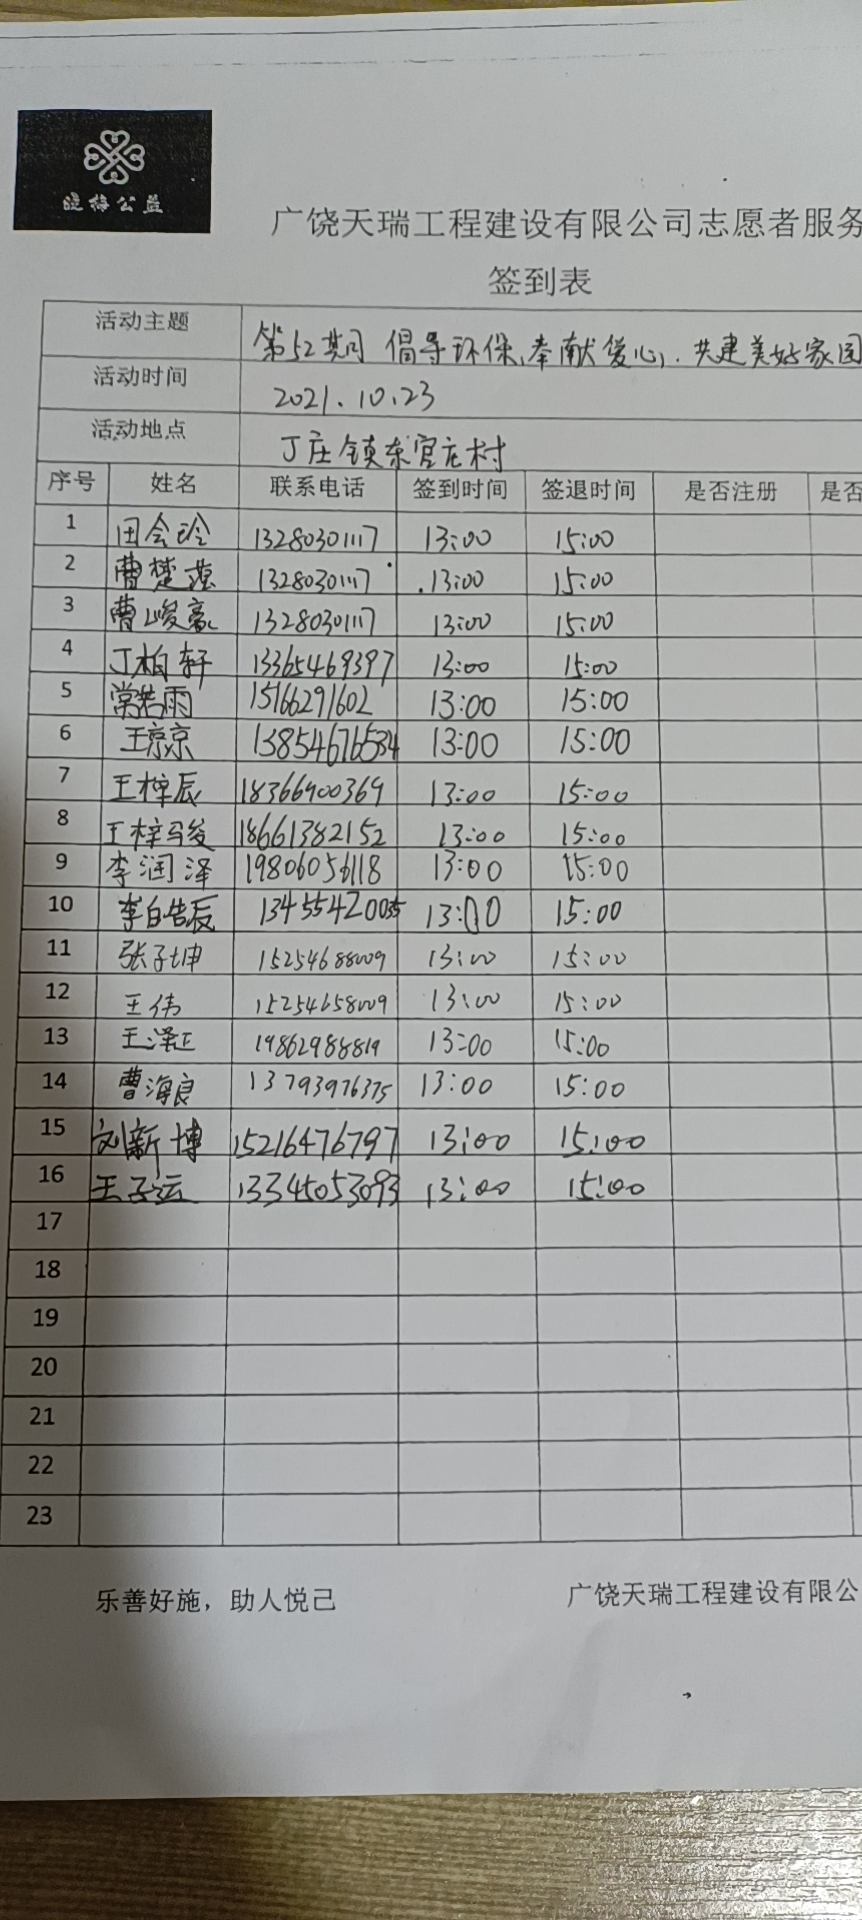 晓梅公益
广饶天瑞工程建设有限公司志愿者服务
签到表
活动主题 第52期 倡导环保,奉献爱心,共建美好家园
活动时间 2021.10.23
活动地点 丁庄镇东官庄村
序号 姓名 联系电话 签到时间 签退时间 是否注册 是否
1 田会玲 13280301117 13:00 15:00
2 曹楚蕴 13280301117 13:00 15:00
3 曹峻豪 13280301117 13:00 15:00
4 丁柏轩 13365469397 13:00 15:00
5 常若雨 15166291602 13:00 15:00
6 王京京 13854676534 13:00 15:00
7 王梓辰 18366900369 13:00 15:00
8 王梓骏 18661382152 13:00 15:00
9 李润泽 19806056118 13:00 15:00
10 李皓辰 13455420035 13:00 15:00
11 张子坤 15254688009 13:00 15:00
12 王伟 15254658009 13:00 15:00
13 王泽正 19862988819 13:00 15:00
14 曹海良 13793976375 13:00 15:00
15 刘新博 15216476797 13:00 15:00
16 王子运 13345053093 13:00 15:00
17
18
19
20
21
22
23
乐善好施，助人悦己 广饶天瑞工程建设有限公